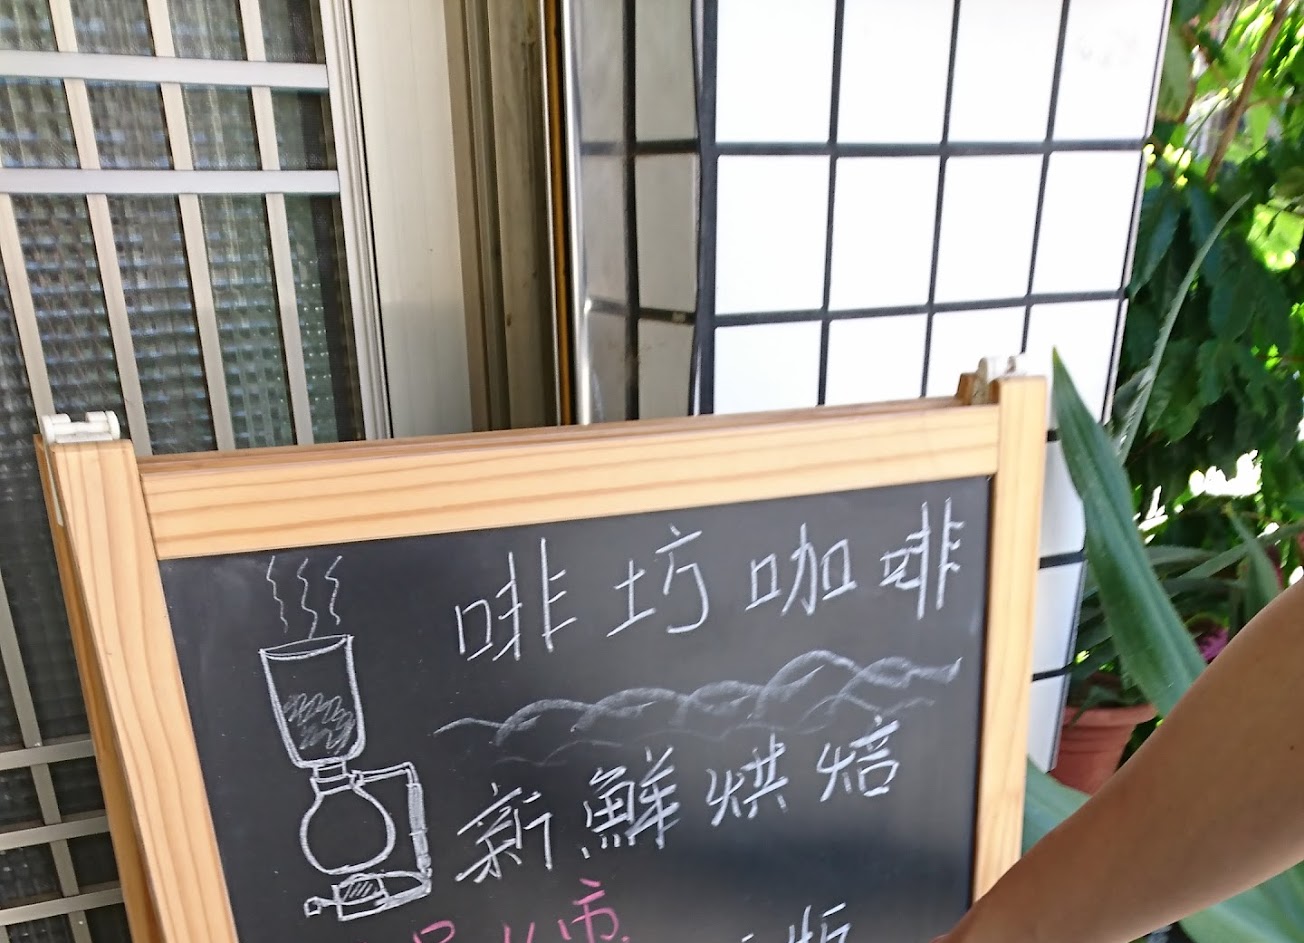 啡坊咖啡
新鮮烘焙